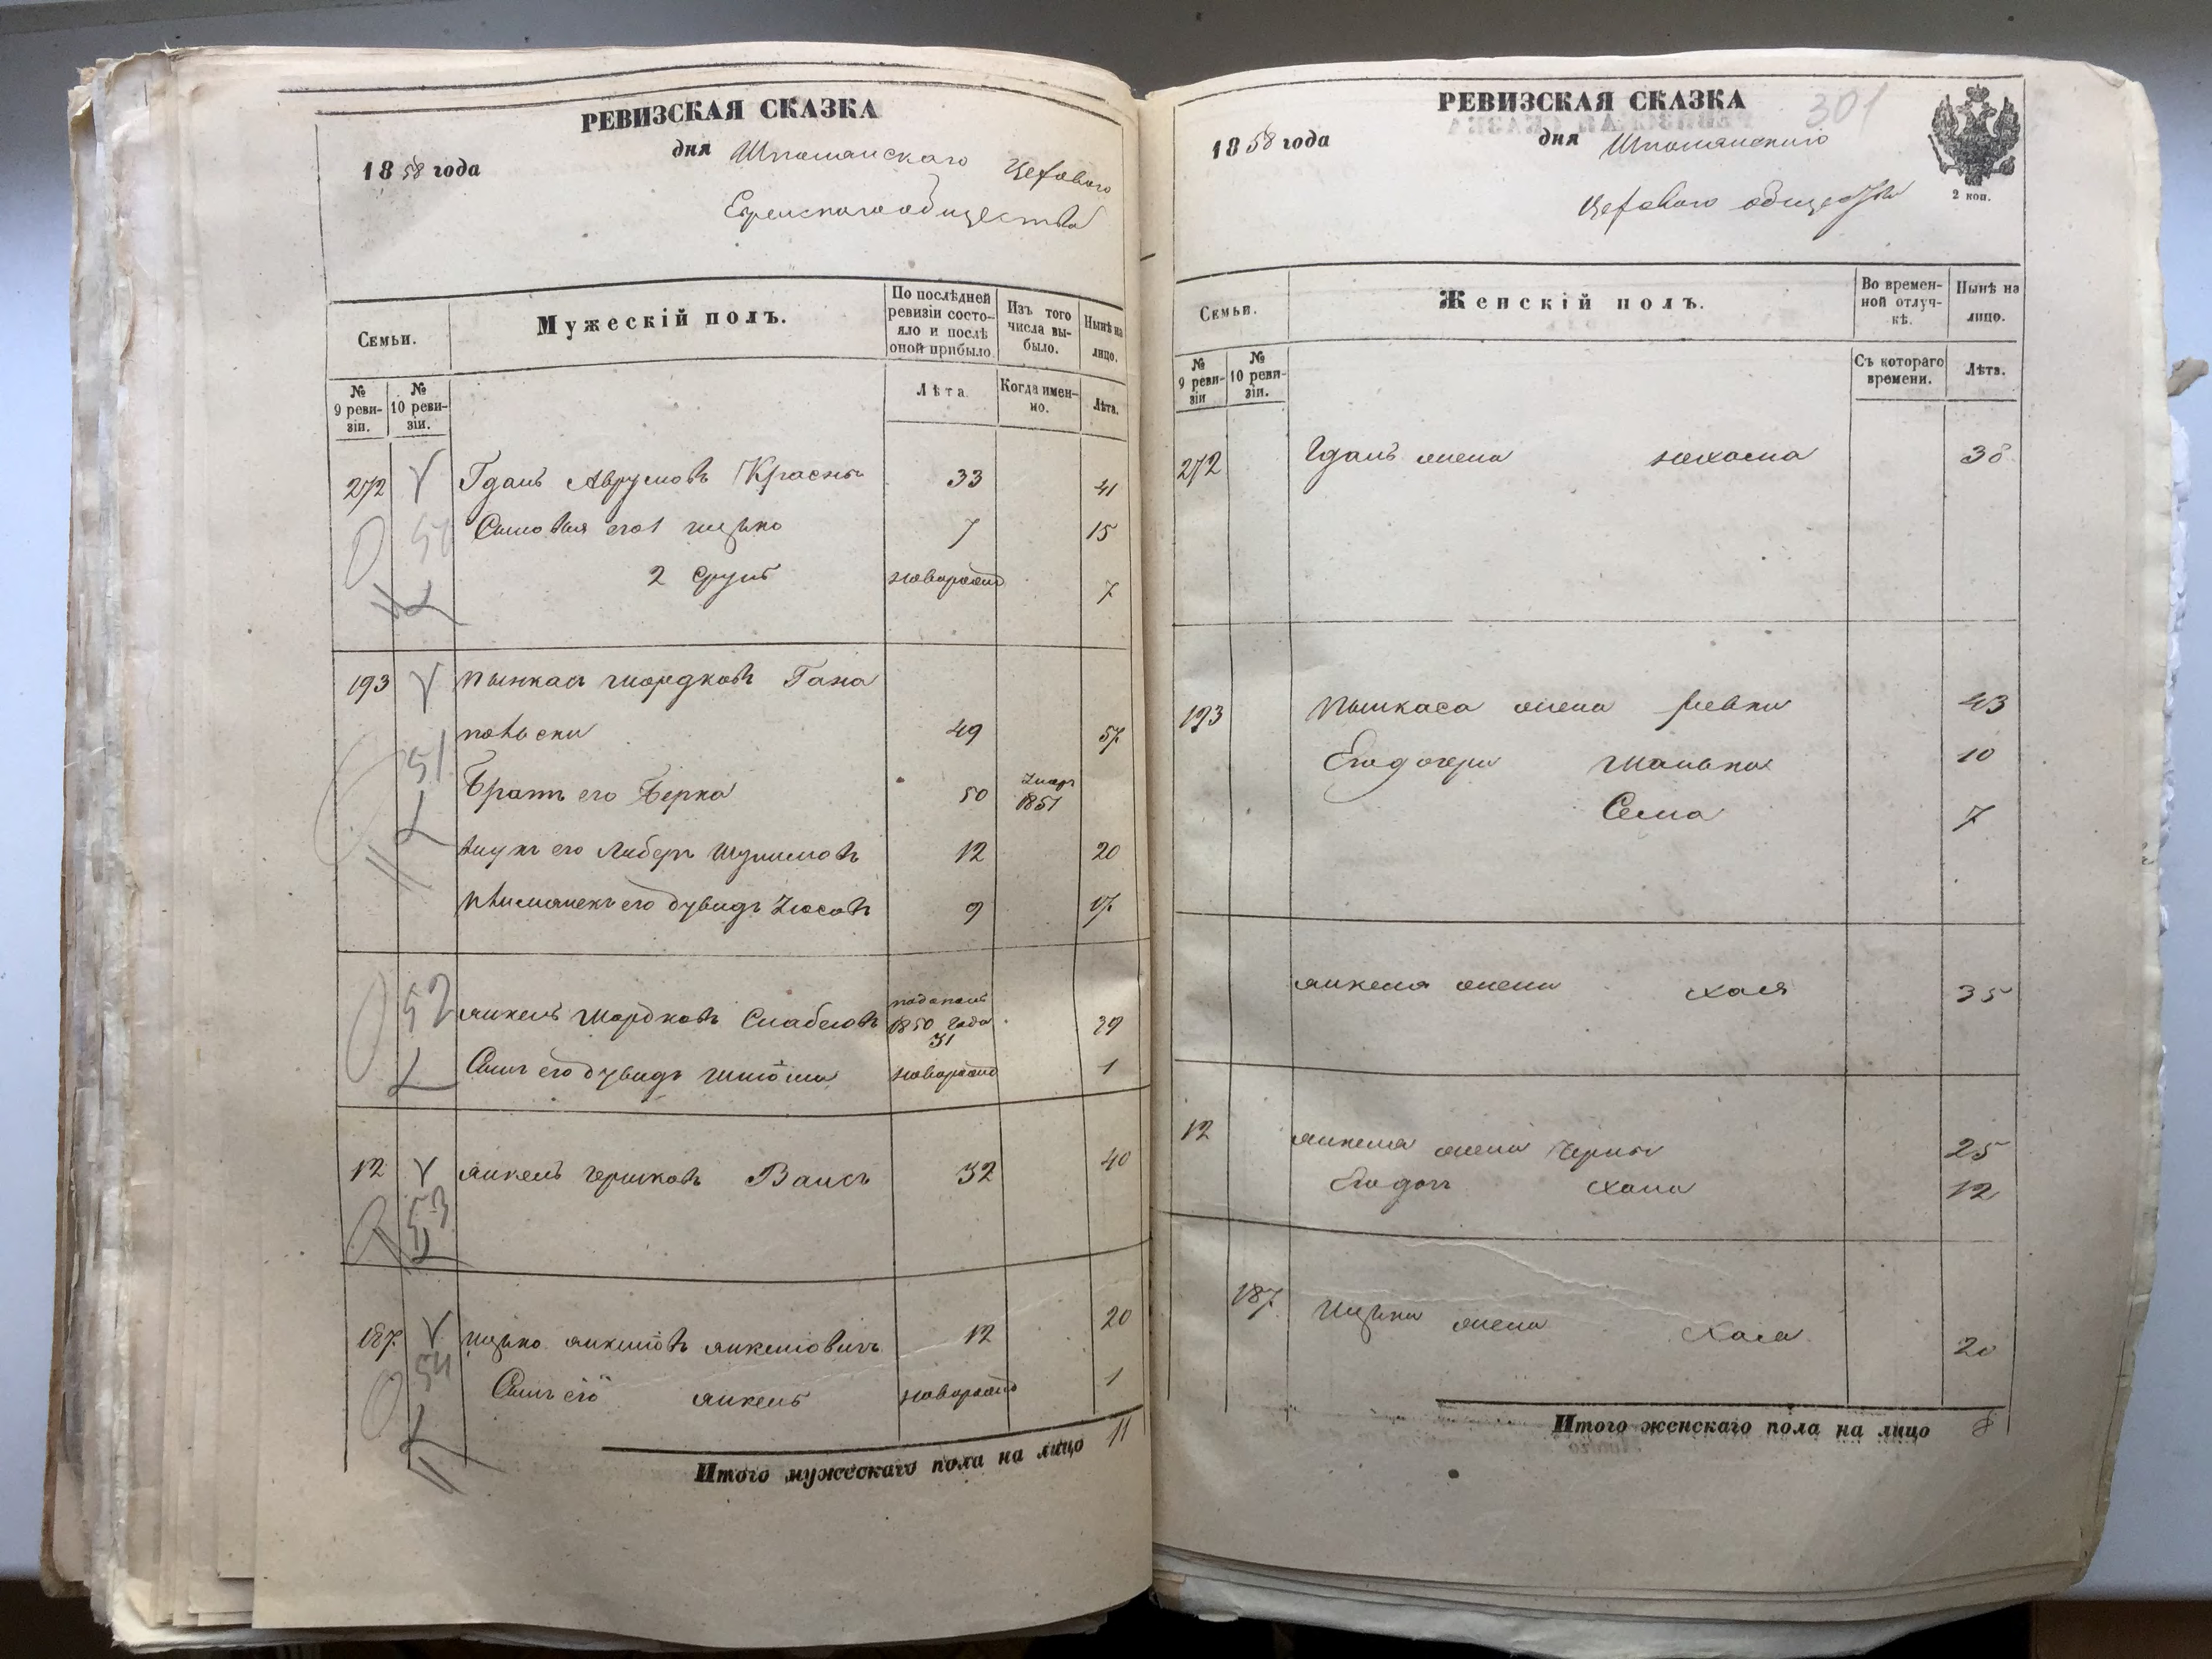 РЕВИЗСКАЯ СКАЗКА
1858 года
дня Шполянскаго Цехового
Еврейского общества
Семьи.
Мужескій полъ.
По послѣдней ревизіи состояло и послѣ оной прибыло.
Изъ того числа выбыло.
Нынѣ на лицо.
№ 9 ревизіи.
№ 10 ревизіи.
Лѣта.
Когда именно.
Лѣта.
272 Аврумовъ Красны 33 41
50 Сыновья его 1 ицько 7 15
2 Сруль новорожд 7
193 Пынкас Мордковъ
49 57
51 Братъ его Берко 50 1851
внукъ его Либеръ 12 20
племянекъ его дувидъ 9 17
52 янкель Мордковъ
1850 года 31 39
Сынъ его дувидъ новорожд 1
12 янкель гершковъ Ваисъ 32 40
53
187 ицько янкелiовъ янкелiовичъ 12 20
54 Сынъ его янкель новорожд 1
Итого мужескаго пола на лицо 11
РЕВИЗСКАЯ СКАЗКА 301
1858 года
дня Шполянскаго
Цехового общества
2 коп.
Семьи.
Женскій полъ.
Во временной отлучкѣ.
Нынѣ на лицо.
№ 9 ревизіи
№ 10 ревизіи.
Съ котораго времени.
Лѣта.
272 жена нехама 38
193 Пынкаса жена ривка 43
Его дочери 10
Сема 7
янкеля жена хая 35
12 янкеля жена черна 25
Его доч хана 12
187 ицька жена хая 20
Итого женскаго пола на лицо 8